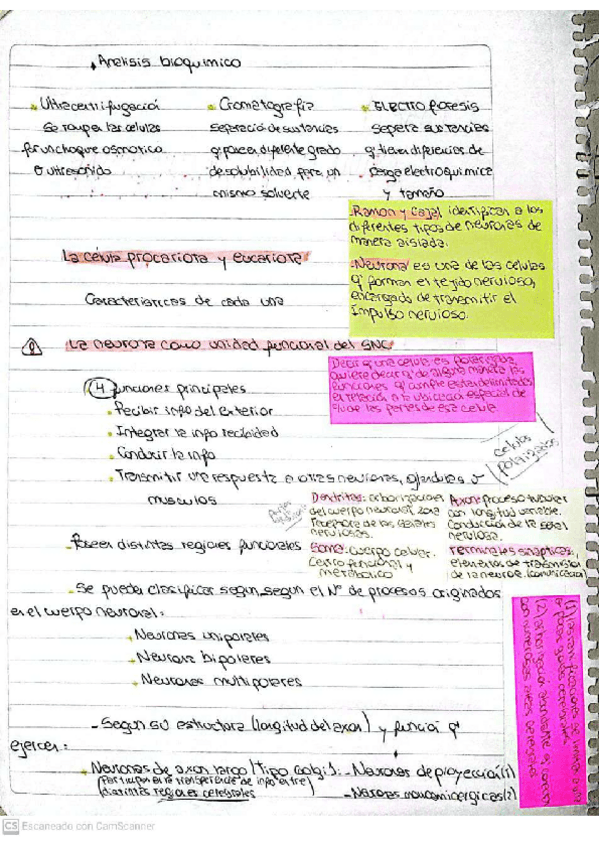 Analisis bioquimico
Ultracentrifugación
se rompen las celulas
por un choque osmotico
o ultrasonido
Cromatografia
separación de sustancias
q poseen diferente grado
de solubilidad para un
mismo solvente
ELECTROforesis
separa sustancias
q tienen diferencias de
carga electroquimica
y tamaño
-Ramon y Cajal identifican a los
diferentes tipos de neuronas de
manera aislada.
-Neurona es una de las celulas
q forman el tejido nervioso,
encargado de transmitir el
Impulso nervioso.
La célula procariota y eucariota
Caracteristicas de cada una
La neurona como unidad funcional del SNC
Decir q una celula es polarizada,
quiere decir q de alguna manera las
funciones q cumple estan delimitadas
en relación a la ubicación espacial de
las partes de esa celula.
4 funciones principales
Recibir info del exterior
Integrar la info recibidad
Conducir la info
Transmitir una respuesta a otras neuronas, glandulas o
musculos
celulas
polarizadas
Dendritas: arborizaciones
del cuerpo neuronal zona
receptora de las señales
nerviosas.
Axon: proceso tubular
con longitud variable.
Conducción de la señal
nerviosa.
Poseen distintas regiones funcionales
Soma: cuerpo celular.
Centro funcional y
metabolico
Terminales sinapticas:
elementos de transmision
de la neurona. (comunicación)
Se puede clasificar segun, segun el N° de procesos originados
en el cuerpo neuronal:
Neuronas unipolares
Neurona bipolares
Neuronas multipolares
- Segun su estructura (longitud del axon) y función q
ejercen:
Neuronas de axon largo (Tipo Golgi): - Neuronas de proyección (1)
(Participan en la transferencia de info entre)
(distintas regiones cerebrales
- Neuronas monoaminergicas (2)
CS Escaneado con CamScanner